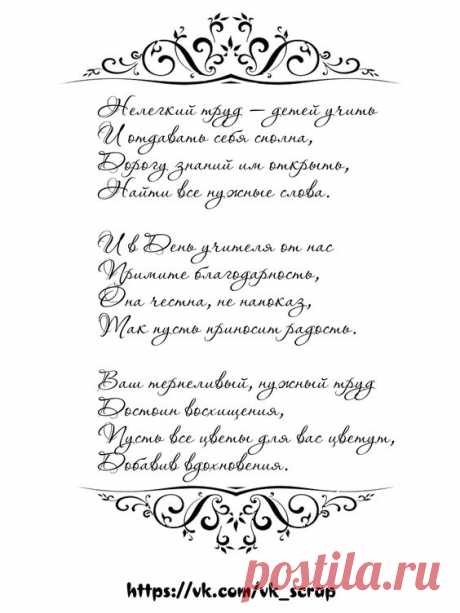 Нелегкий труд – детей учить
И отдавать себя сполна,
Дорогу знаний им открыть,
Найти все нужные слова.
И в День учителя от нас
Примите благодарность,
Она честна, не напоказ,
Так пусть приносит радость.
Ваш терпеливый, нужный труд
Достоин восхищения,
Пусть все цветы для вас цветут,
Добавив вдохновения.
https://vk.com/vk_scrap
postila.ru